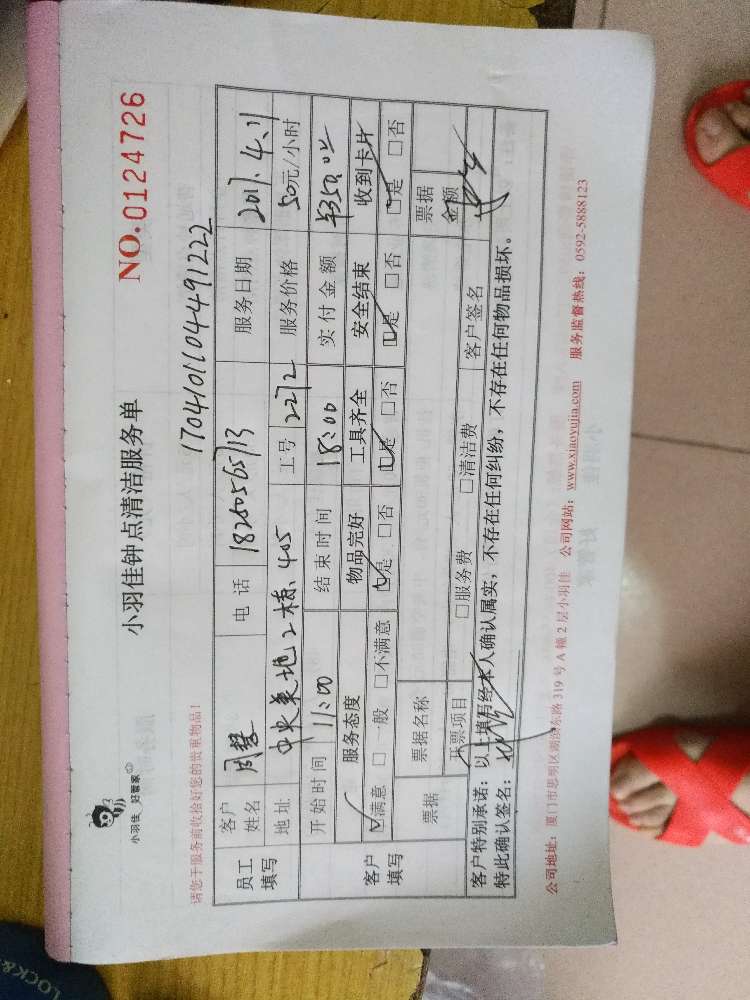 小羽佳 好管家
小羽佳钟点清洁服务单
NO.0124726
请您于服务前收拾好您的贵重物品!
1704101104491222
员工填写
客户姓名 周慧 电话 18205065713 服务日期 2017.4.11
地址 2栋、405 工号 2272 服务价格 50元/小时
开始时间 11:00 结束时间 18:00 实付金额 ¥350.
客户填写
服务态度 物品完好 工具齐全 安全结束 收到卡片
☑满意 □一般 □不满意 ☑是 □否 ☑是 □否 ☑是 □否 ☑是 □否
票据 票据名称 票据金额
开票项目 □服务费 □清洁费 客户签名
客户特别承诺:以上填写经本人确认属实,不存在任何纠纷,不存在任何物品损坏。
特此确认签名:
公司地址:厦门市思明区湖滨东路319号A幢2层小羽佳 公司网站:www.xiaoyujia.com 服务监督热线:0592-5888123
LOCK&